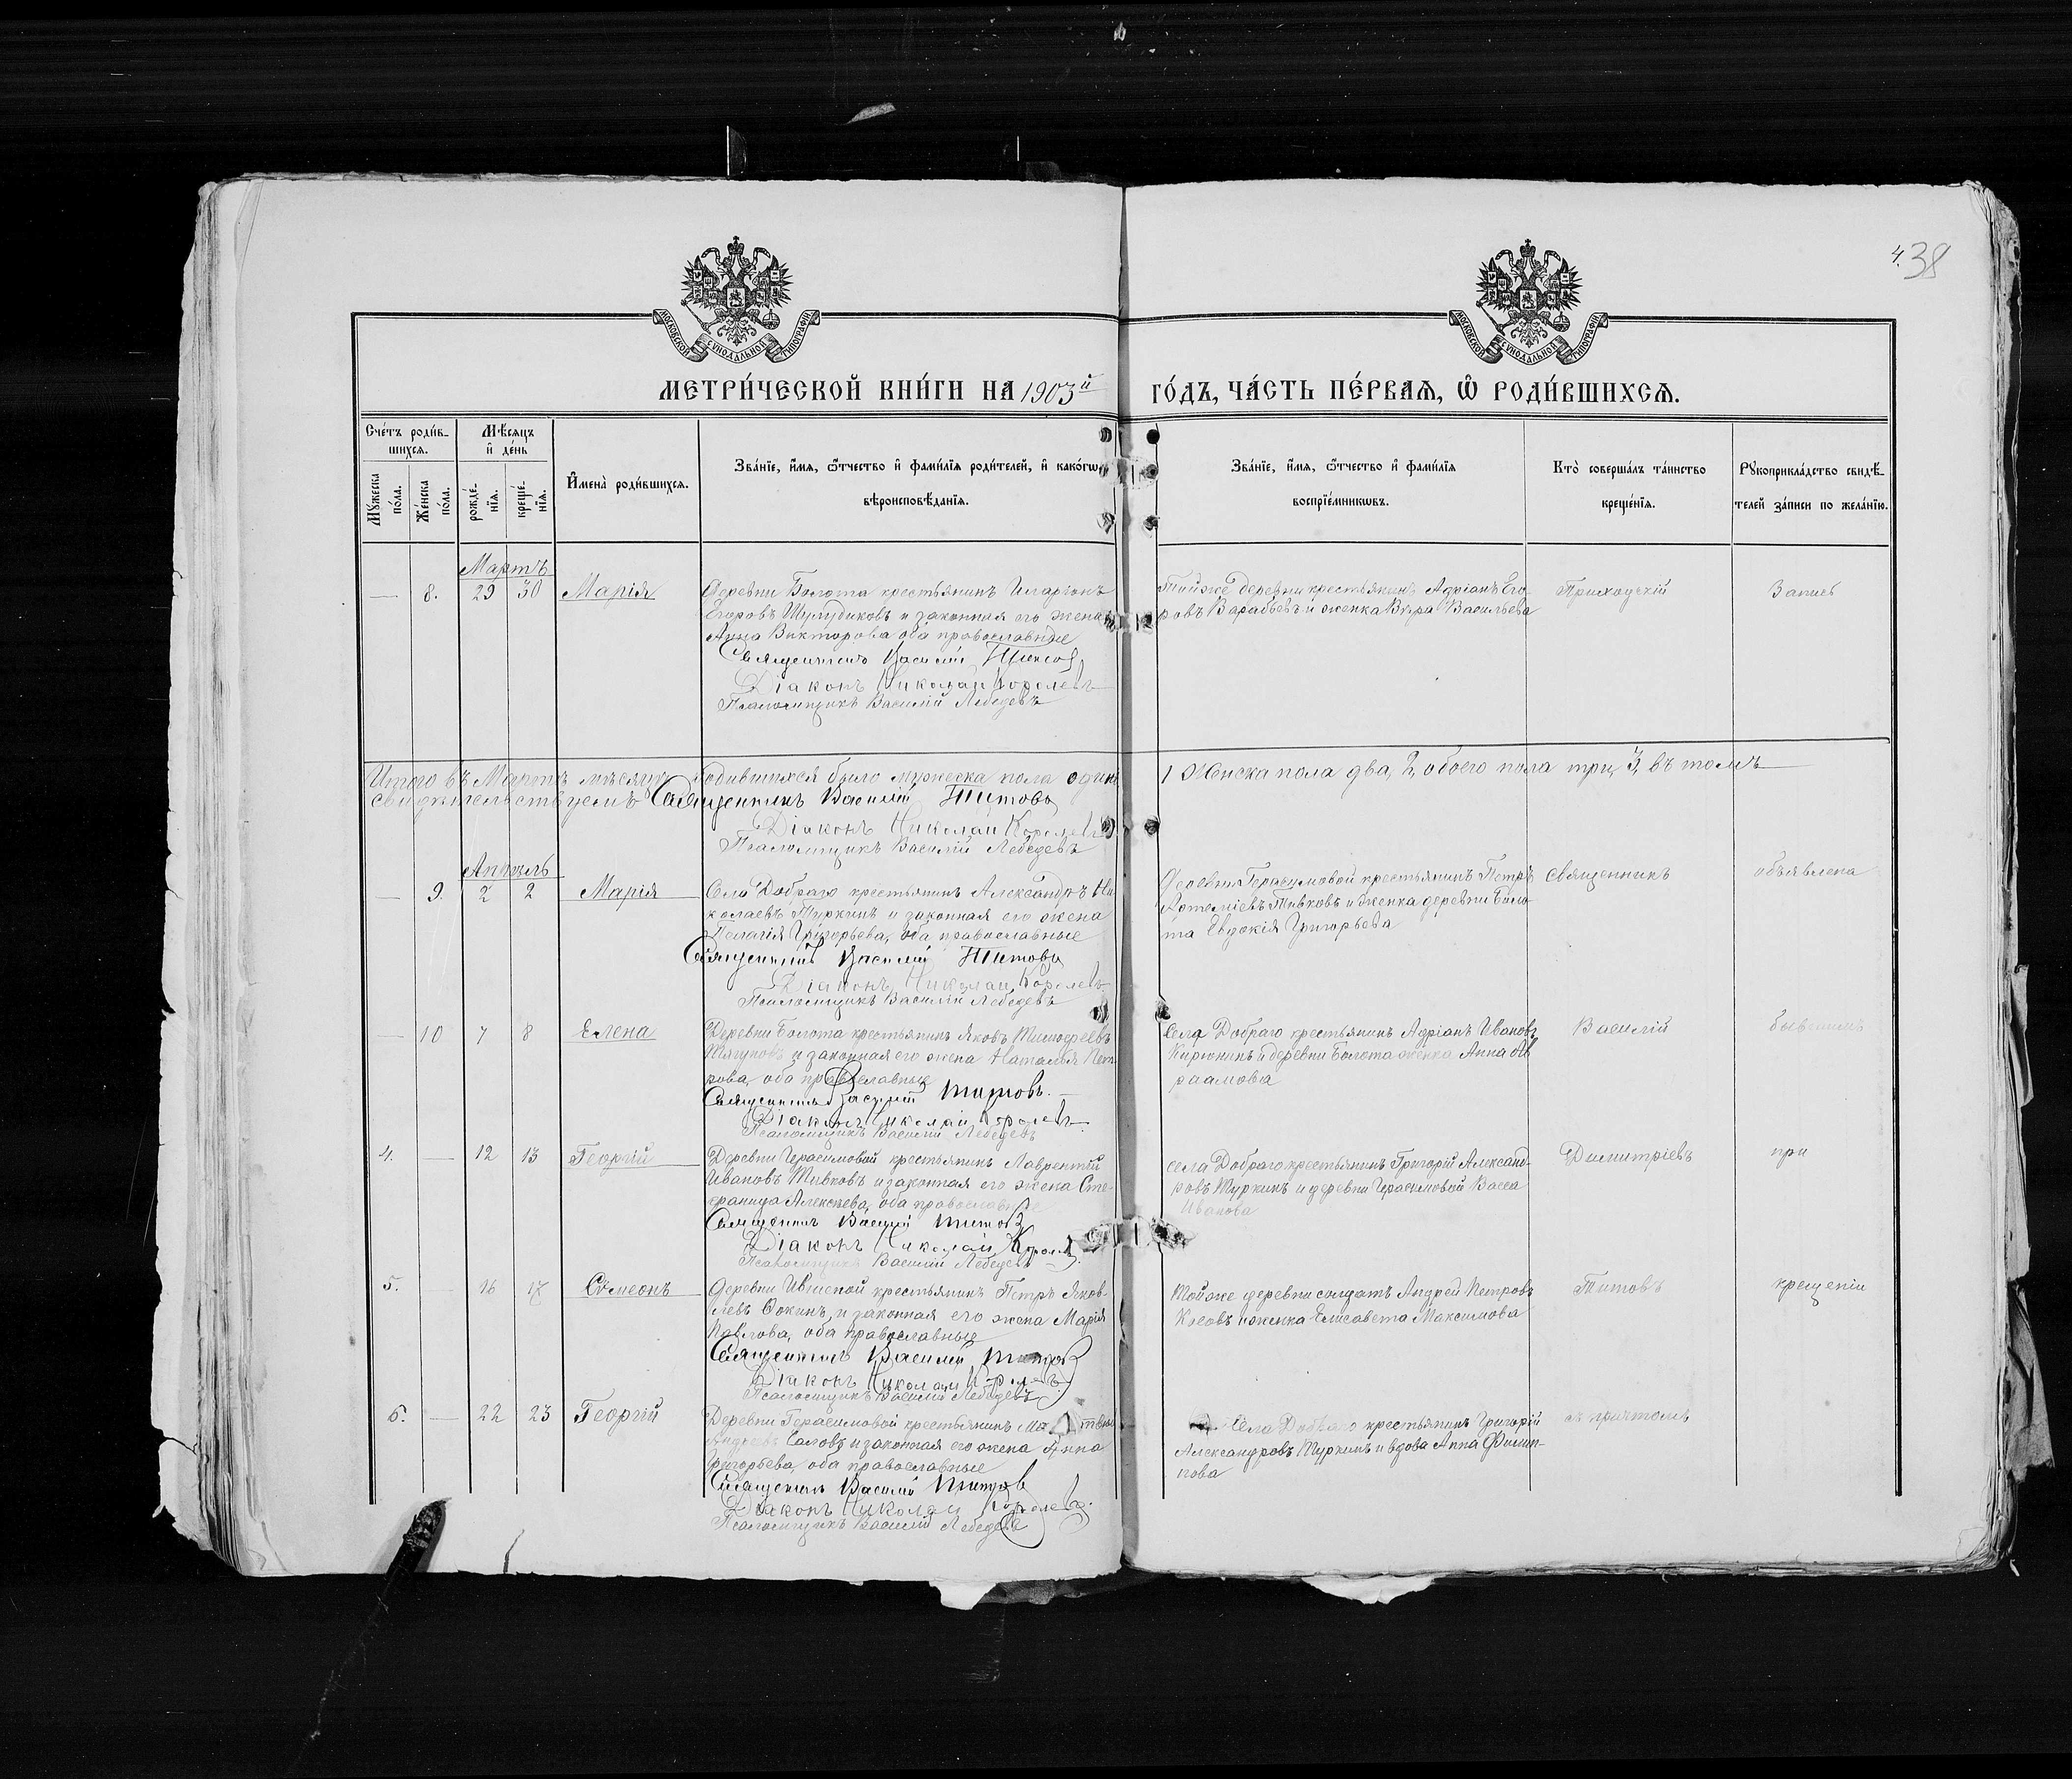 4. 38
МОСКОВСКОЙ СѴНОДАЛЬНОЙ ТИПОГРАФІИ
МОСКОВСКОЙ СѴНОДАЛЬНОЙ ТИПОГРАФІИ
МЕТРИ́ЧЕСКОЙ КНИ́ГИ НА 1903й ГО́ДЪ, ЧА́СТЬ ПЕ́РВАЯ, Ѡ РОДИ́ВШИХСЯ.
Сче́тъ роди́в-
шихся.
Мѣ́сяцъ
и де́нь
Мꙋ́жеска
по́ла.
Же́нска
по́ла.
рожде́-
нїя.
креще́-
нїя.
Имена̀ роди́вшихся.
Зва́нїе, и́мя, ѻ҆́тчество и фами́лїя роди́телей, и како́гѡ
вѣроисповѣ́данїя.
Зва́нїе, и́мя, ѻ҆́тчество и фами́лїя
воспрїе́мникѡвъ.
Кто̀ соверша́лъ та́инство
креще́нїя.
Рꙋкоприкла́дство свидѣ́-
телей за́писи по жела́нїю.
Мартъ
— 8. 29 30 Марія
Деревни Болота крестьянинъ Иларіонъ
Егоровъ Шулудиковъ и законная его жена
Анна Викторова оба православные
Священникъ Василій Титовъ
Діаконъ Николай Королевъ
Псаломщикъ Василій Лебедевъ
Тойже деревни крестьянинъ Адріанъ Его-
ровъ Варабьевъ и женка Вѣра Васильева
Приходскій
Запись
Итого въ Мартѣ мѣсяцѣ родившихся было мужеска пола одинъ 1 Женска пола два, 2, обоего пола три, 3, въ томъ
свидѣтельствуемъ Священникъ Василій Титовъ
Діаконъ Николай Королевъ
Псаломщикъ Василій Лебедевъ
Апрѣль
— 9. 2 2 Марія
Села Добраго крестьянинъ Александръ Ни
колаевъ Туркинъ и законная его жена
Пелагія Григорьева, оба православные
Священникъ Василій Титовъ
Діаконъ Николай Королевъ
Псаломщикъ Василій Лебедевъ
Деревни Герасимовой крестьянинъ Петръ
Артеміевъ Тивковъ и женка деревни Боло-
та Евдокія Григорьева
Священникъ
объявлена
— 10 7 8 Елена
Деревни Болота крестьянинъ Яковъ Тимофеевъ
и законная его жена Наталья Пет
рова, оба православные
Священникъ Василій Титовъ.
Діаконъ Николай Королевъ
Псаломщикъ Василій Лебедевъ
Села Добраго крестьянинъ Адріанъ Ивановъ
Кирюнинъ и деревни Болота женка Анна Ав
раамова
Василій
бывшимъ
4. — 12 13 Георгій
Деревни Герасимовой крестьянинъ Лаврентій
Ивановъ Тивковъ и законная его жена Сте-
фанида Алексѣева, оба православные
Священникъ Василій Титовъ
Діаконъ Николай Королевъ
Псаломщикъ Василій Лебедевъ
села Добраго крестьянинъ Григорій Александ-
ровъ Туркинъ и деревни Герасимовой Васса
Иванова
Димитріевъ
при
5. — 16 17 Сѵмеонъ
Деревни крестьянинъ Петръ Яков-
левъ Ѳокинъ, и законная его жена Марія
Павлова, оба православные
Священникъ Василій Титовъ
Діаконъ Николай Королевъ
Псаломщикъ Василій Лебедевъ
Тойже деревни солдатъ Андрей Петровъ
Косовъ и женка Елисавета Максимова
Титовъ
крещеніи
6. — 22 23 Георгій
Деревни Герасимовой крестьянинъ
Андреевъ Саловъ и законная его жена Анна
Григорьева, оба православные
Священникъ Василій Титовъ
Діаконъ Николай Королевъ
Псаломщикъ Василій Лебедевъ
Села Добраго крестьянинъ Григорій
Александровъ Туркинъ и вдова Анна Филип-
пова
съ причтомъ